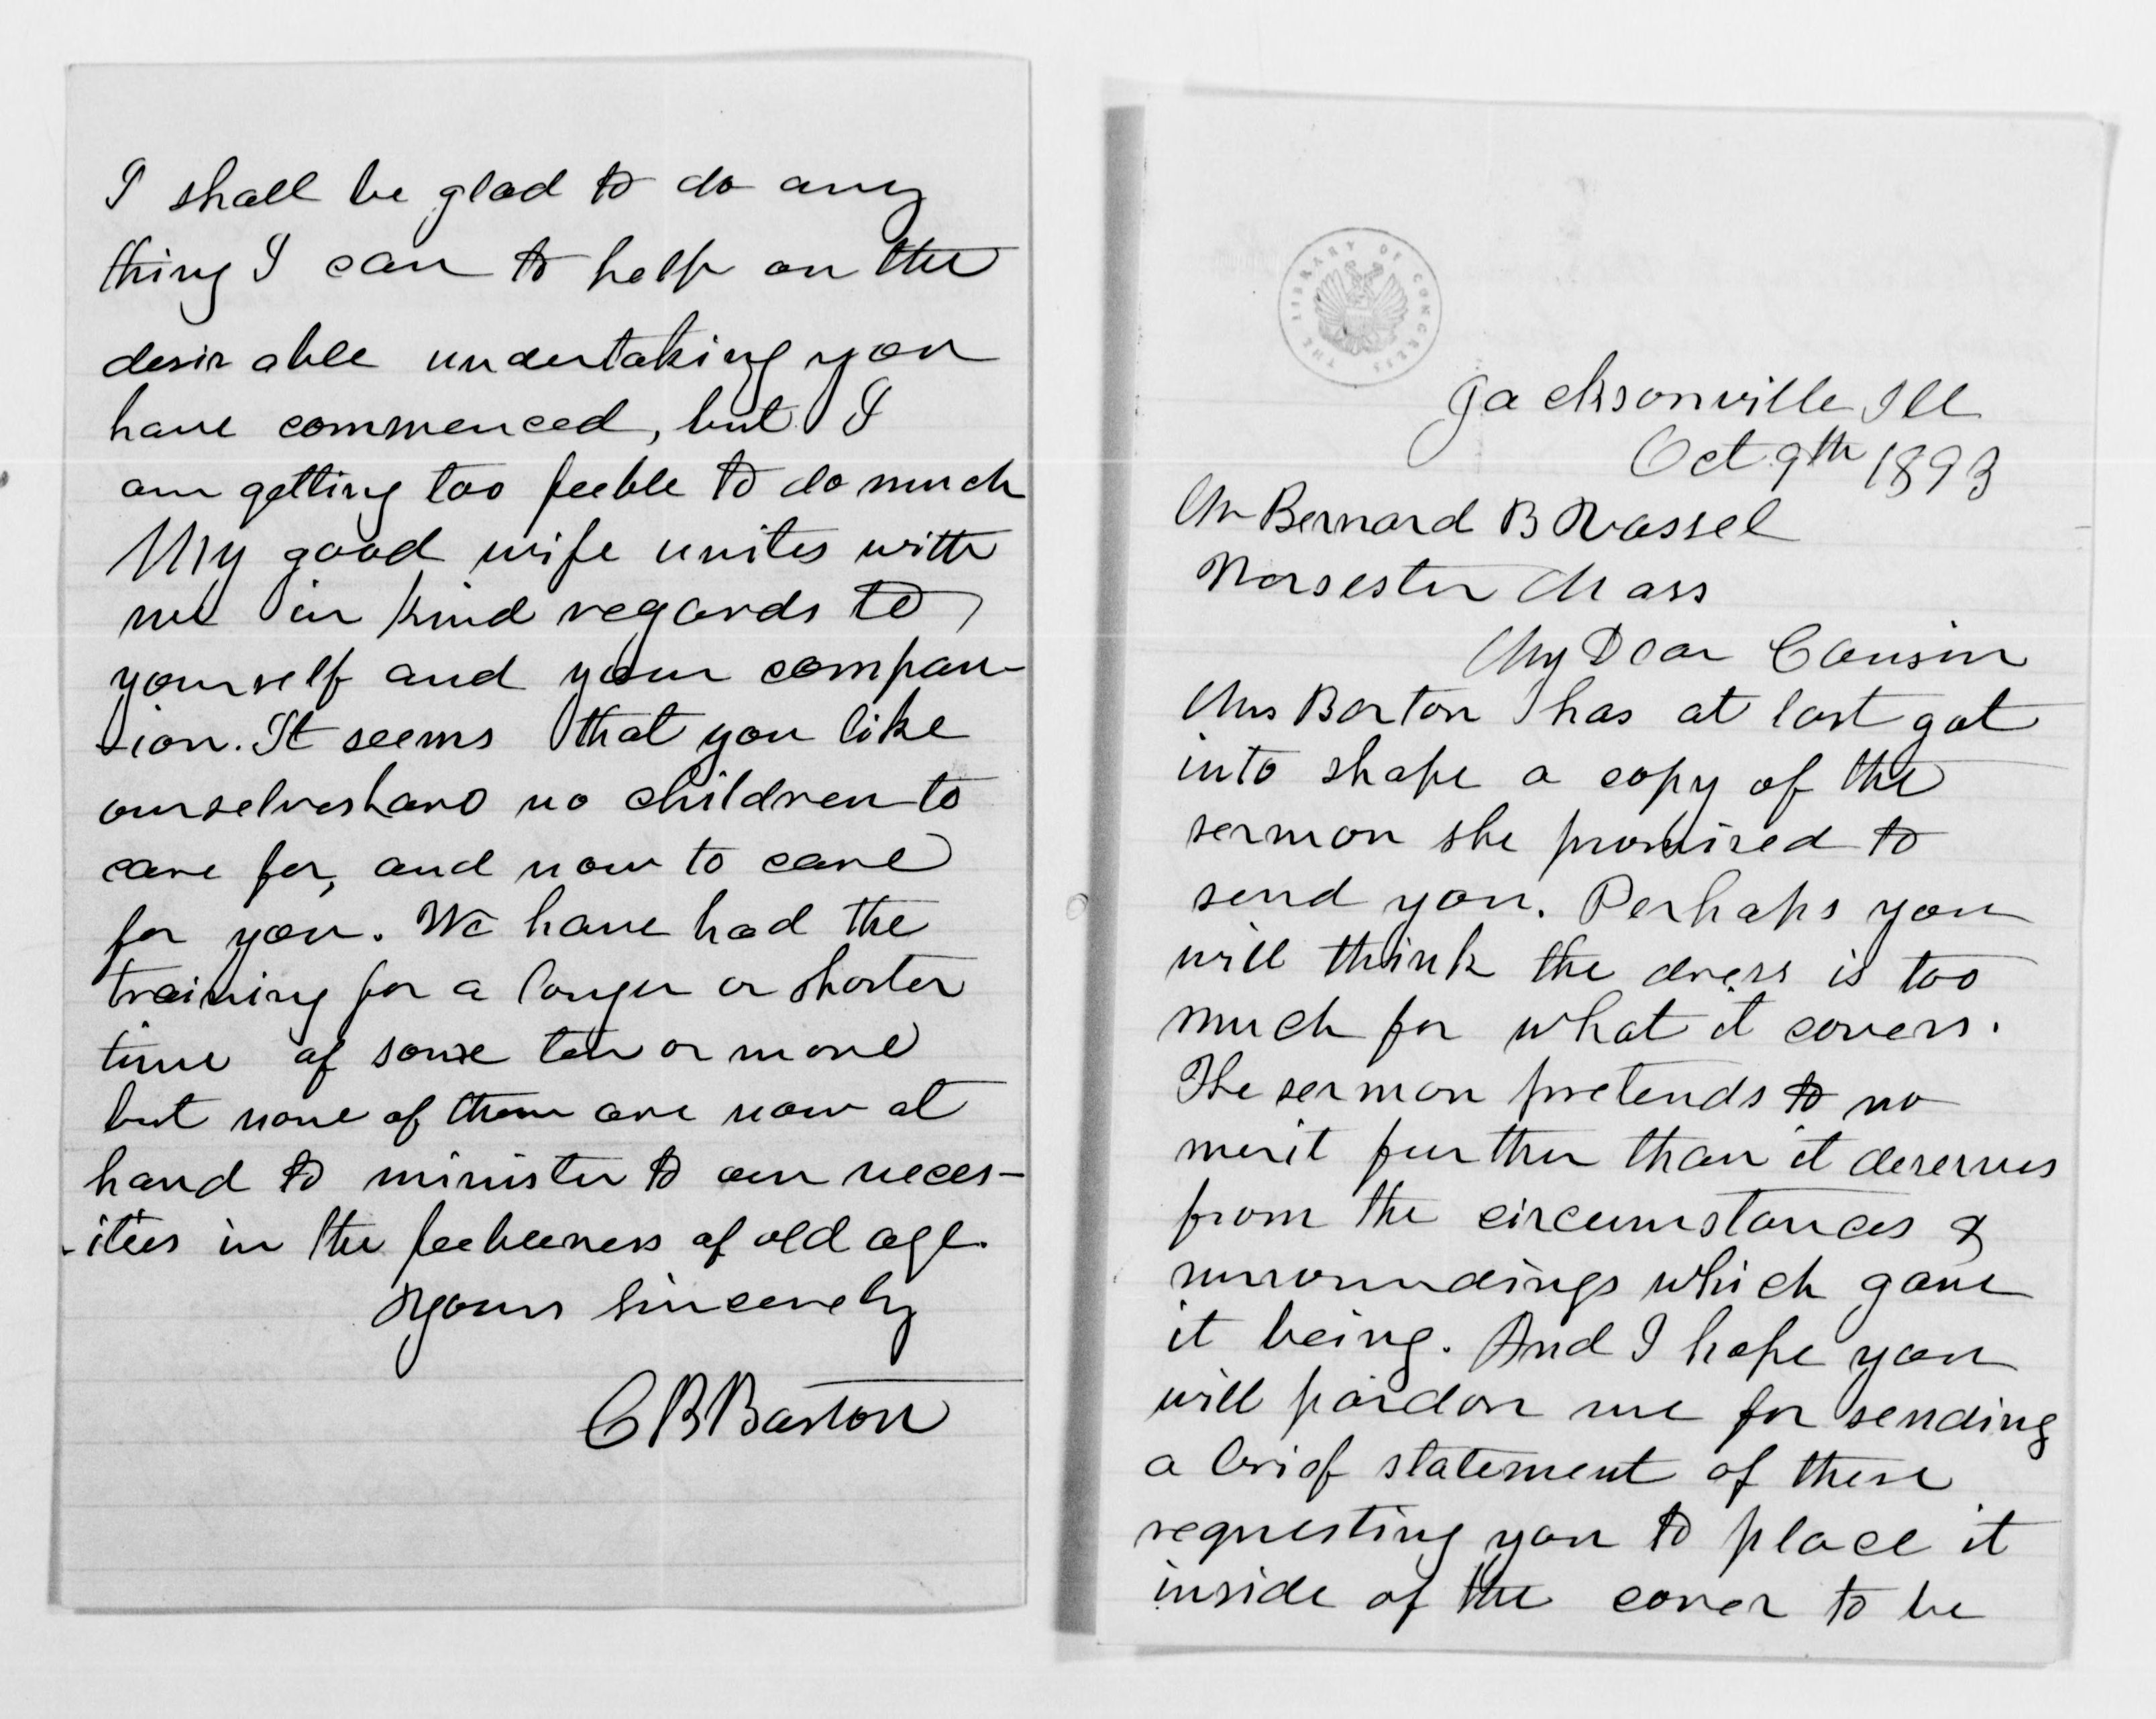 I shall be glad to do any
thing I can to help on the
desirable undertaking you
have commenced, but I
am getting too feeble to do much
My good wife unites with
me in kind regards to
yourself and your compan-
-ion. It seems that you like
ourselves have no children to
care for, and now to care
for you. We have had the
training for a longer or shorter
time of some ten or more
but none of them are now at
hand to minister to our neces-
-ities in the feebleness of old age.
Yours sincerely
C B Barton
THE LIBRARY OF CONGRESS
Jacksonville Ill
Oct 9th 1893
Mr Bernard B Vassel
Worsester Mass
My Dear Cousin
Mrs Barton has at last got
into shape a copy of the
sermon she promised to
send you. Perhaps you
will think the dress is too
much for what it covers.
The sermon pretends to no
merit further than it deserves
from the circumstances &
surroundings which gave
it being. And I hope you
will pardon me for sending
a brief statement of these
requesting you to place it
inside of the cover to be